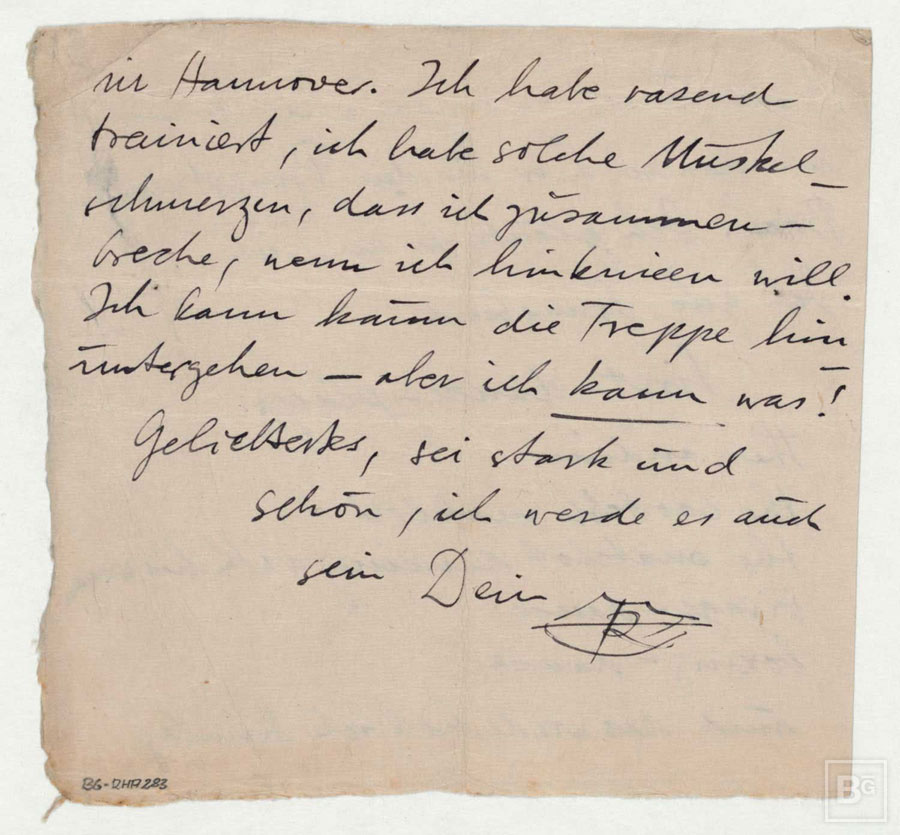 in Hannover. Ich habe rasend
trainiert, ich habe solche Muskel-
schmerzen, dass ich zusammen-
breche, wenn ich hinknieen will.
Ich kann kaum die Treppe hin-
untergehen – aber ich kann was!
Geliebtestes, sei stark und
schön, ich werde es auch
sein Dein
BG-RHA283
BG